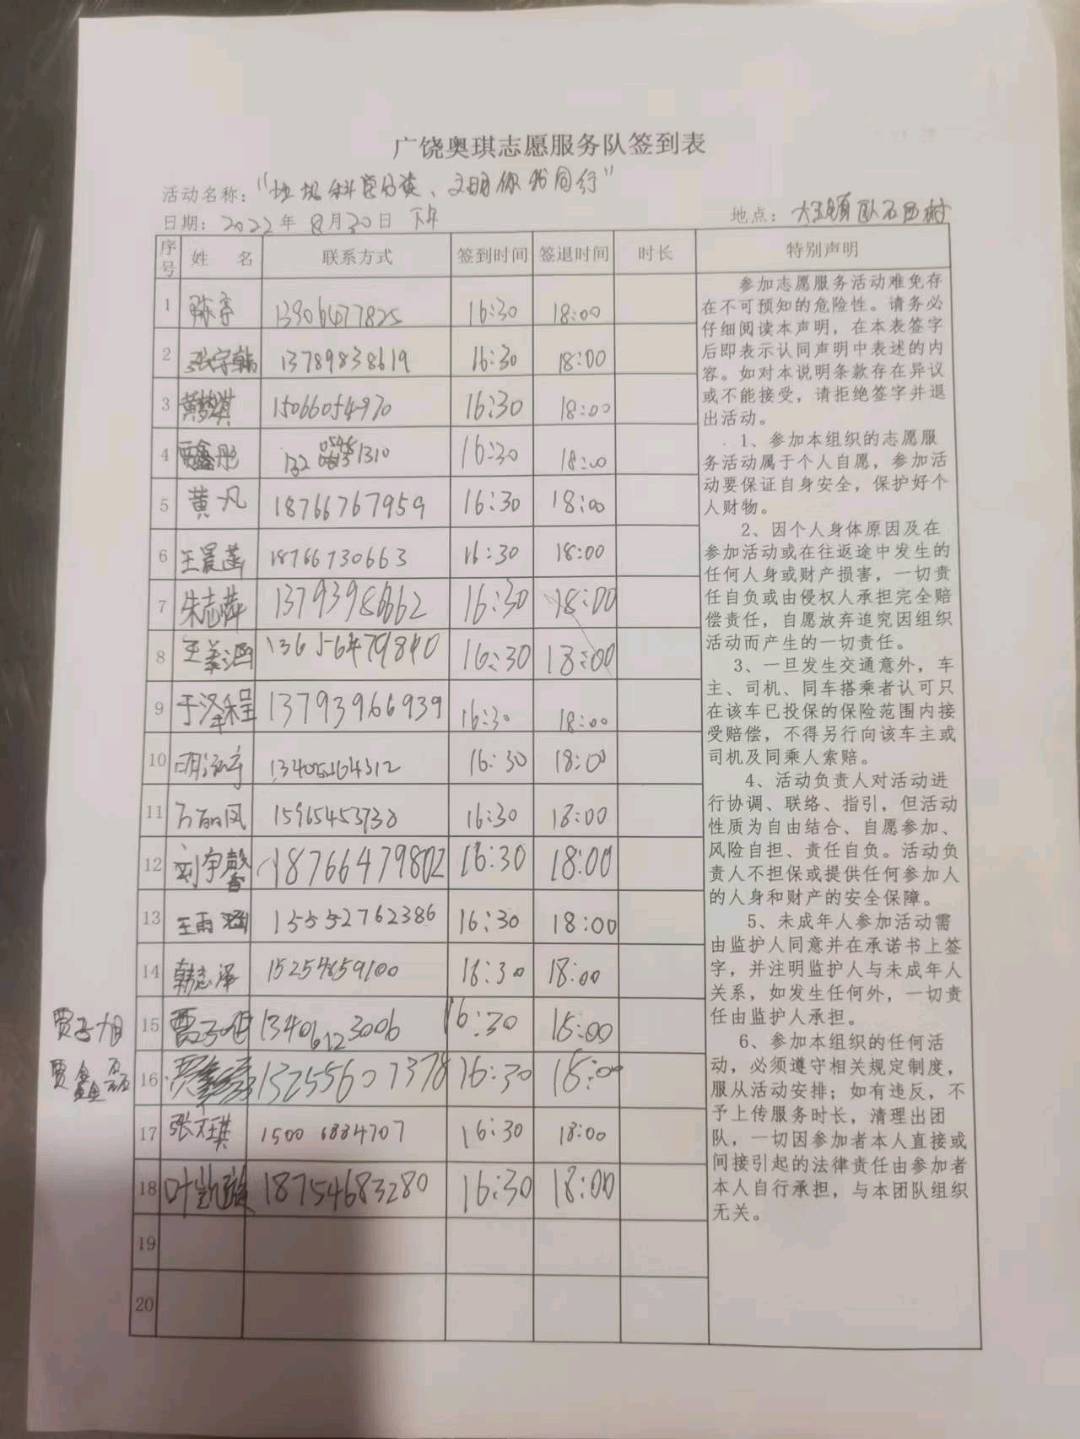 广饶奥琪志愿服务队签到表
活动名称：“垃圾科学分类、文明你我同行”
日期：2022年8月30日 下午
地点：大王镇
序号 姓名 联系方式 签到时间 签退时间 时长 特别声明
1 陈亭 13906477825 16:30 18:00
2 张宇韩 13789838619 16:30 18:00
3 黄梦琪 15066054970 16:30 18:00
4 贾鑫彤 16:30 18:00
5 黄凡 18766767959 16:30 18:00
6 王晨菡 18766730663 16:30 18:00
7 朱志萍 16:30 18:00
8 13656479840 16:30 18:00
9 于泽程 13793966939 16:30 18:00
10 16:30 18:00
11 16:30 18:00
12 刘宇馨 18766479802 16:30 18:00
13 王雨涵 15552762386 16:30 18:00
14 韩志泽 15254659100 16:30 18:00
贾子旭 15 13406123006 16:30 18:00
贾鑫磊 16 13255607378 16:30 18:00
17 张天琪 15006834707 16:30 18:00
18 叶凯璇 18754683280 16:30 18:00
19
20
参加志愿服务活动难免存
在不可预知的危险性。请务必
仔细阅读本声明，在本表签字
后即表示认同声明中表述的内
容。如对本说明条款存在异议
或不能接受，请拒绝签字并退
出活动。
1、参加本组织的志愿服
务活动属于个人自愿，参加活
动要保证自身安全，保护好个
人财物。
2、因个人身体原因及在
参加活动或在往返途中发生的
任何人身或财产损害，一切责
任自负或由侵权人承担完全赔
偿责任，自愿放弃追究因组织
活动而产生的一切责任。
3、一旦发生交通意外，车
主、司机、同车搭乘者认可只
在该车已投保的保险范围内接
受赔偿，不得另行向该车主或
司机及同乘人索赔。
4、活动负责人对活动进
行协调、联络、指引，但活动
性质为自由结合、自愿参加、
风险自担、责任自负。活动负
责人不担保或提供任何参加人
的人身和财产的安全保障。
5、未成年人参加活动需
由监护人同意并在承诺书上签
字，并注明监护人与未成年人
关系，如发生任何外，一切责
任由监护人承担。
6、参加本组织的任何活
动，必须遵守相关规定制度，
服从活动安排；如有违反，不
予上传服务时长，清理出团
队，一切因参加者本人直接或
间接引起的法律责任由参加者
本人自行承担，与本团队组织
无关。